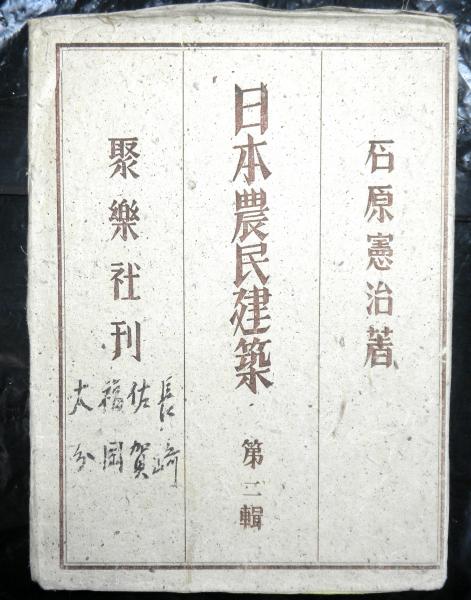 石原憲治著
日本農民建築 第二輯
聚樂社刊
長崎
佐賀
福岡
大分